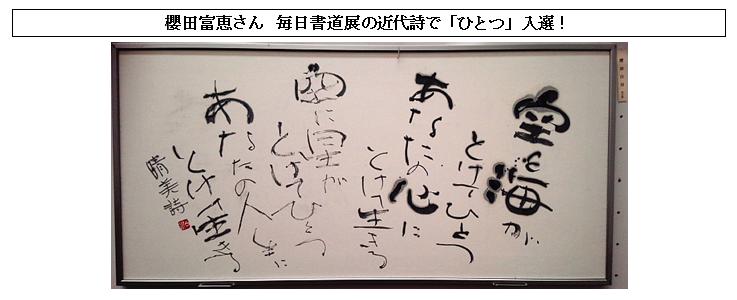 櫻田富恵さん 毎日書道展の近代詩で「ひとつ」入選！
空と海が
とけてひとつ
あなたの心に
とけて生きる
に星が
とけてひとつ
あなたの人
とけて生きる
晴美詩